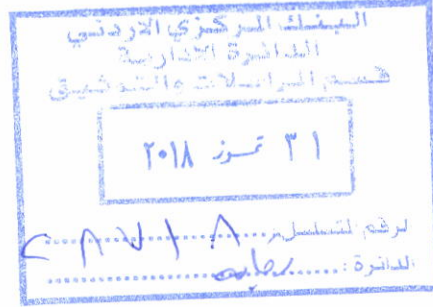 البنك المركزي الاردني
الدائرة الادارية
قسم المراسلات والتوثيق
٣١ تموز ٢٠١٨
الرقم المتسلسل
الدائرة : رقابة